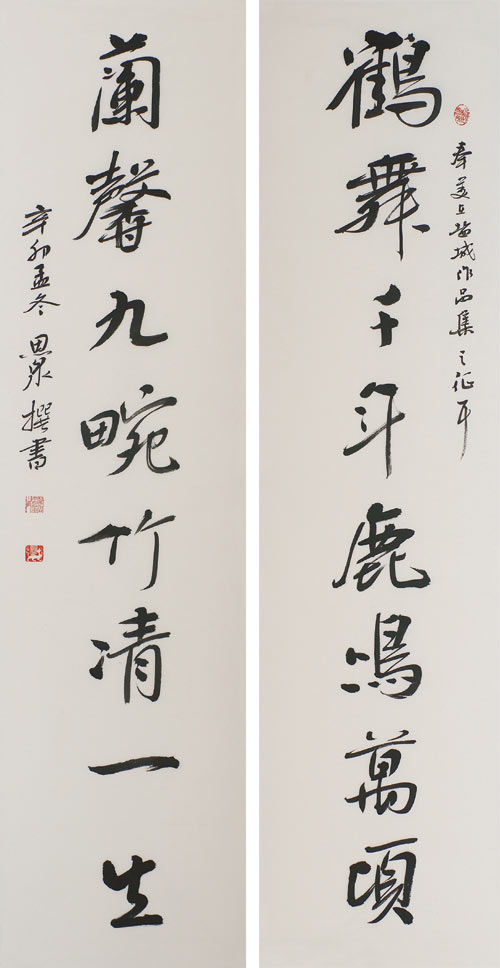 鶴舞千年鹿鳴萬頃
奉美在盐城作品集之征耳
蘭馨九畹竹清一生
辛卯孟冬思泉撰書